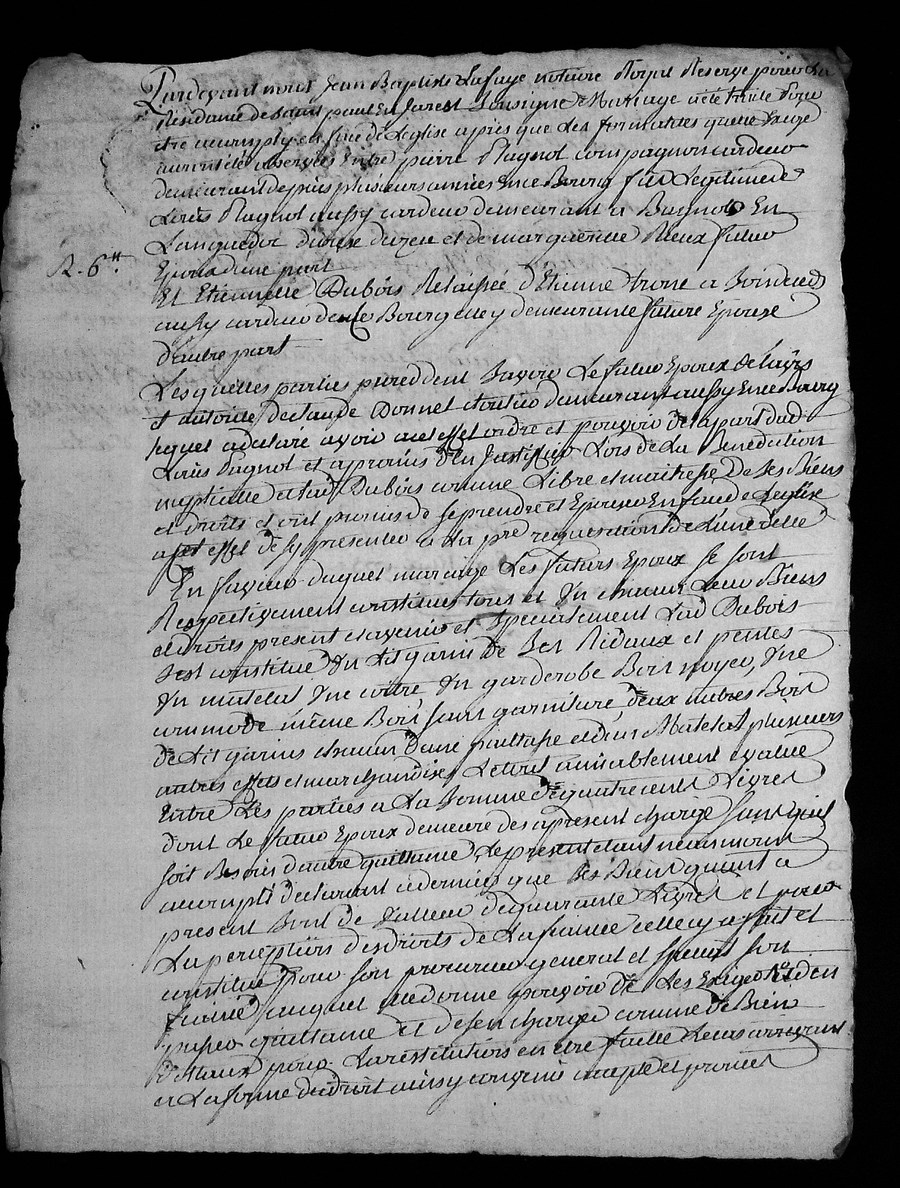 Pardevant nous Jean Baptiste Lafaye notaire Royal Reservé pour la
Residance de Saint paul En Jarest Soussigné Mariage a été traité Pour
être accomply en face de L'eglise après que les formalités quelle Exige
auront été observées Entre pierre Pagnol compagnon cardeur
demeurant depuis plusieurs années En ce Bourg fils Legitime de
Louis Pagnol aussy cardeur demeurant a Bagnols En
Languedoc diocèse duzese et de marguerite Rieux futur
R. 6tt.
Epoux d'une part
Et Etiennette Dubois Relaissée d'Etienne
aussy cardeur de ce Bourg et y demeurante future Epouse
d'autre part
Lesquelles parties procedent Savoir Le futur Epoux de L'avis
et autorité de Claude Donnet demeurant aussy En ce Bourg
lequel a declaré avoir a cet effet ordre et pouvoir de la part dud
Louis Pagnol et a promis d'en Justifier Lors de La Benediction
nuptiale et lad Dubois comme Libre et maitresse De Ses Biens
et droits et ont promis de Se prendre et Epouser En face de L'eglise
a cet effet de S'y presenter a La pre requisition de L'une d'elle
En faveur duquel mariage Les futurs Epoux Se sont
Respectivement constitués tous et Un chacun Leur Biens
et droits present et avenir et Specialement Lad Dubois
S'est constitué Un Lit garni de Ses Rideaux et pentes
Un matelat Une coitre Un garderobe Bois noyer, Une
commode même Bois Sans garniture, deux autres Bois
de Lit garnis chacun d'une paillasse et d'un Matelat, plusieurs
autres effets et marchandises Le tout amiablement evalué
Entre Les parties a La Somme de quatre cent Livres
dont Le futur Epoux demeure des apresent chargé Sans qu'il
soit Besoin d'autre quittance Le present etant neanmoins
declarant ce dernier que Ses Biens quant a
present Sont de Valleur de quarante Livres et pour
La perception des droits de La fiancée celle cy a fait et
constitué pour Son procureur general et Special Son
fiancé auquel elle donne pouvoir de Les Exiger d'en
passer quittance et d'en charger comme de Biens
dotaux pour La restitution en etre faitte Le cas arrivant
a La forme du droit ainsy convenu accepté et promis